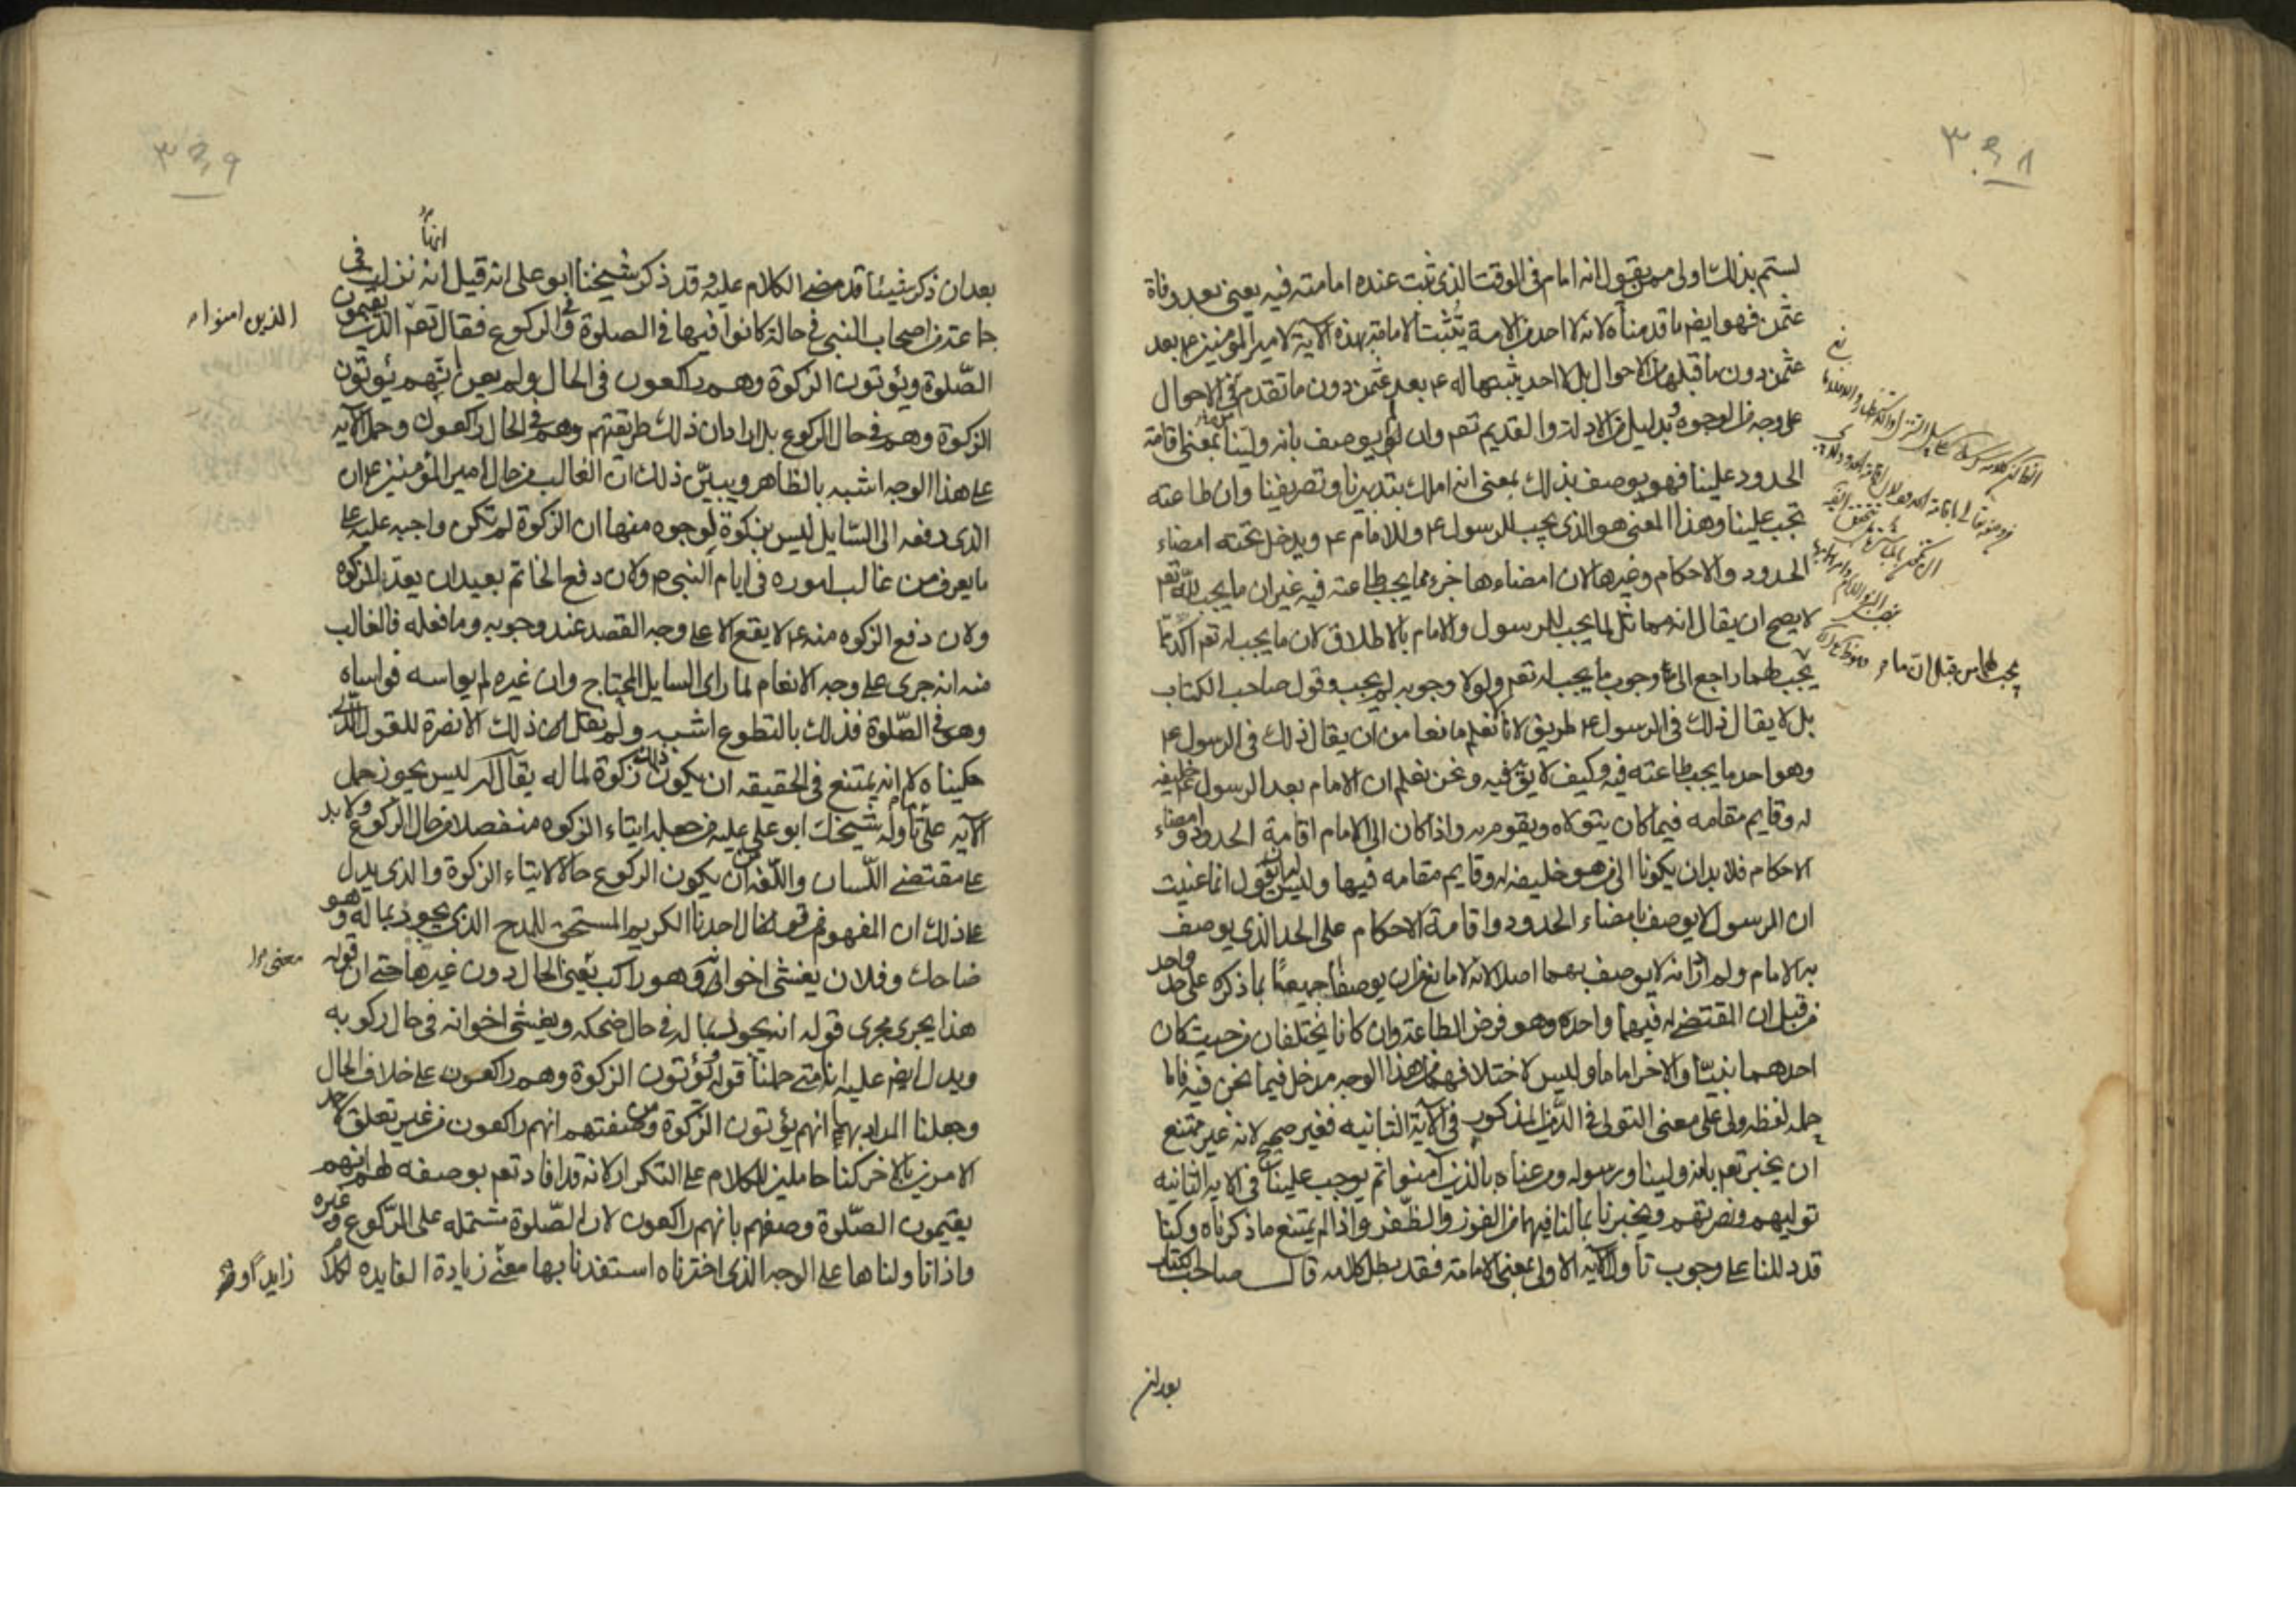 ٣٤٨
لستم بذلك اولى ممن يقول انه امام فى الوقت الذى ثبت عنده امامته فيه يعنى بعد وفاة
عثمن فهو ايضم ما قدمناه لانه لا احد من الامة يثبت الامامة بهذه الآية لامير المؤمنين ع بعد
عثمن دون ما قبلها من الاحوال بل لا احد يثبتها له ع بعد عثمن دون ما تقدم من الاحوال
على وجه من الوجوه وبدليل من الادلة والقديم تعم وان لم يوصف بانه ولينا بمعنى اقامة
الحدود علينا فهو يوصف بذلك بمعنى انه املك بتدبيرنا وتصريفنا وان طاعته
تجب علينا وهذا المعنى هو الذى يجب للرسول ع وللامام ع ويدخل تحته امضاء
الحدود والاحكام وغيرها لان امضاءها جزء مما يجب طاعته فيه غير ان ما يجب لله تعم
لا يصح ان يقال انه مماثل لما يجب للرسول والامام بالاطلاق لان ما يجب له تعم آكد مما
يجب لهما راجع الى وجوب ما يجب له تعم ولولا وجوبه لم يجب وقول صاحب الكتاب
بل لا يقال ذلك فى الرسول ع طريق لانا نعلم مانعا من ان يقال ذلك فى الرسول ع
وهو احد ما يجب طاعته فيه وكيف لا يق فيه ونحن نعلم ان الامام بعد الرسول ع خليفة
له وقايم مقامه فيما كان يتولاه ويقوم به واذا كان الى الامام اقامة الحدود وامضاء
الاحكام فلا بد ان يكونا الى من هو خليفة له وقايم مقامه فيها وليس له ان يقول انما عنيت
ان الرسول لا يوصف بامضاء الحدود واقامة الاحكام على الحد الذى يوصف
به الامام ولم ارد انه لا يوصف بهما اصلا لانه لا مانع من ان يوصفا جميعا بما ذكره على حد واحد
من قبل ان المقتضى له فيهما واحد وهو فرض الطاعة وان كانا يختلفان من حيث كان
احدهما نبيا والاخر اماما وليس لاختلافهما من هذا الوجه مدخل فيما نحن فيه فاما
حمله لفظه ولى على معنى التولى فى الدين المذكور فى الآية الثانيه فغير صحيح لانه غير ممتنع
ان يخبر تعم بانه ولينا ورسوله ومن عناه بالذين آمنوا ثم يوجب علينا فى الايه الثانيه
توليهم ونصرتهم ويخبرنا بما لنا فيهما من الفوز والظفر واذا لم يمتنع ما ذكرناه وكنا
قد دللنا على وجوب تاول الآيه الاولى بمعنى الامامة فقد بطل كلامه قال صاحب الكتاب
يجب لهما من قبل ان ما
بعد ان
٣٤٩
بعد ان ذكر شيئا قد مضى الكلام عليه وقد ذكر شيخنا ابو على انه قيل انه نزلت فى
جماعة من اصحاب النبى فى حالة كانوا فيها فى الصلوة وفى الركوع فقال تعم الذين يقيمون
الذين امنوا
الصّلوة ويؤتون الزكوة وهم راكعون فى الحال ولم يعن انهم يؤتون
الزكوة وهم فى حال الركوع بل اراد ان ذلك طريقتهم وهم فى الحال راكعون وحمل الآيه
على هذا الوجه اشبه بالظاهر ويبيّن ذلك ان الغالب من حال امير المؤمنين ع ان
الذى دفعه الى السّايل ليس بزكوة لوجوه منها ان الزكوة لم تكن واجبه عليه على
ما يعرف من غالب اموره فى ايام النبى ص ولان دفع الخاتم بعيد ان يعد من الزكوة
ولان دفع الزكوه منه ع لا يقع الا على وجه القصد عند وجوبه وما فعله فالغالب
منه انه جرى على وجه الانعام لما راى السايل المحتاج وان غيره لم يواسه فواساه
وهو فى الصّلوة فذلك بالتطوع اشبه ولم نقل ان ذلك الا نصرة للقول الّذى
حكيناه لا انه يمتنع فى الحقيقه ان يكون ذلك زكوة لماله يقال له ليس يجوز حمل
الآيه على تأوله شيخك ابو على عليه من جعله ايتاء الزكوه منفصلا من حال الركوع ولا بد
على مقتضى اللّسان واللّغه من ان يكون الركوع حالا لايتاء الزكوة والذى يدل
على ذلك ان المفهوم من قول احدنا الكريم المستحق للمدح الذى يجود بماله وهو
ضاحك وفلان يغشى اخوانه وهو راكب يعنى الحال دون غيرها حتى ان قوله
هذا يجرى مجرى قوله انه يجود بماله فى حال ضحكه ويغشى اخوانه فى حال ركوبه
ويدل ايضم عليه انا متى حملنا قوله يؤتون الزكوة وهم راكعون على خلاف الحال
وجعلنا المراد بها انهم يؤتون الزكوة ومن صفتهم انهم راكعون من غير تعلق لاحد
الامرين بالاخر كنا حاملين للكلام على التكرار لانه قد افاد تعم بوصفه لهم انهم
يقيمون الصّلوة وصفهم بانهم راكعون لان الصّلوة مشتمله على الرّكوع وغيره
واذا تاولناها على الوجه الذى اخترناه استفدنا بها معنى زيادة الفايده